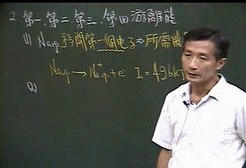 2 第一.第二.第三.第四游離能
(1) Na(g) 移開第一個電子⇒所需能
Na(g) → Na⁺(g) + e I₁ = 496kJ
(2)